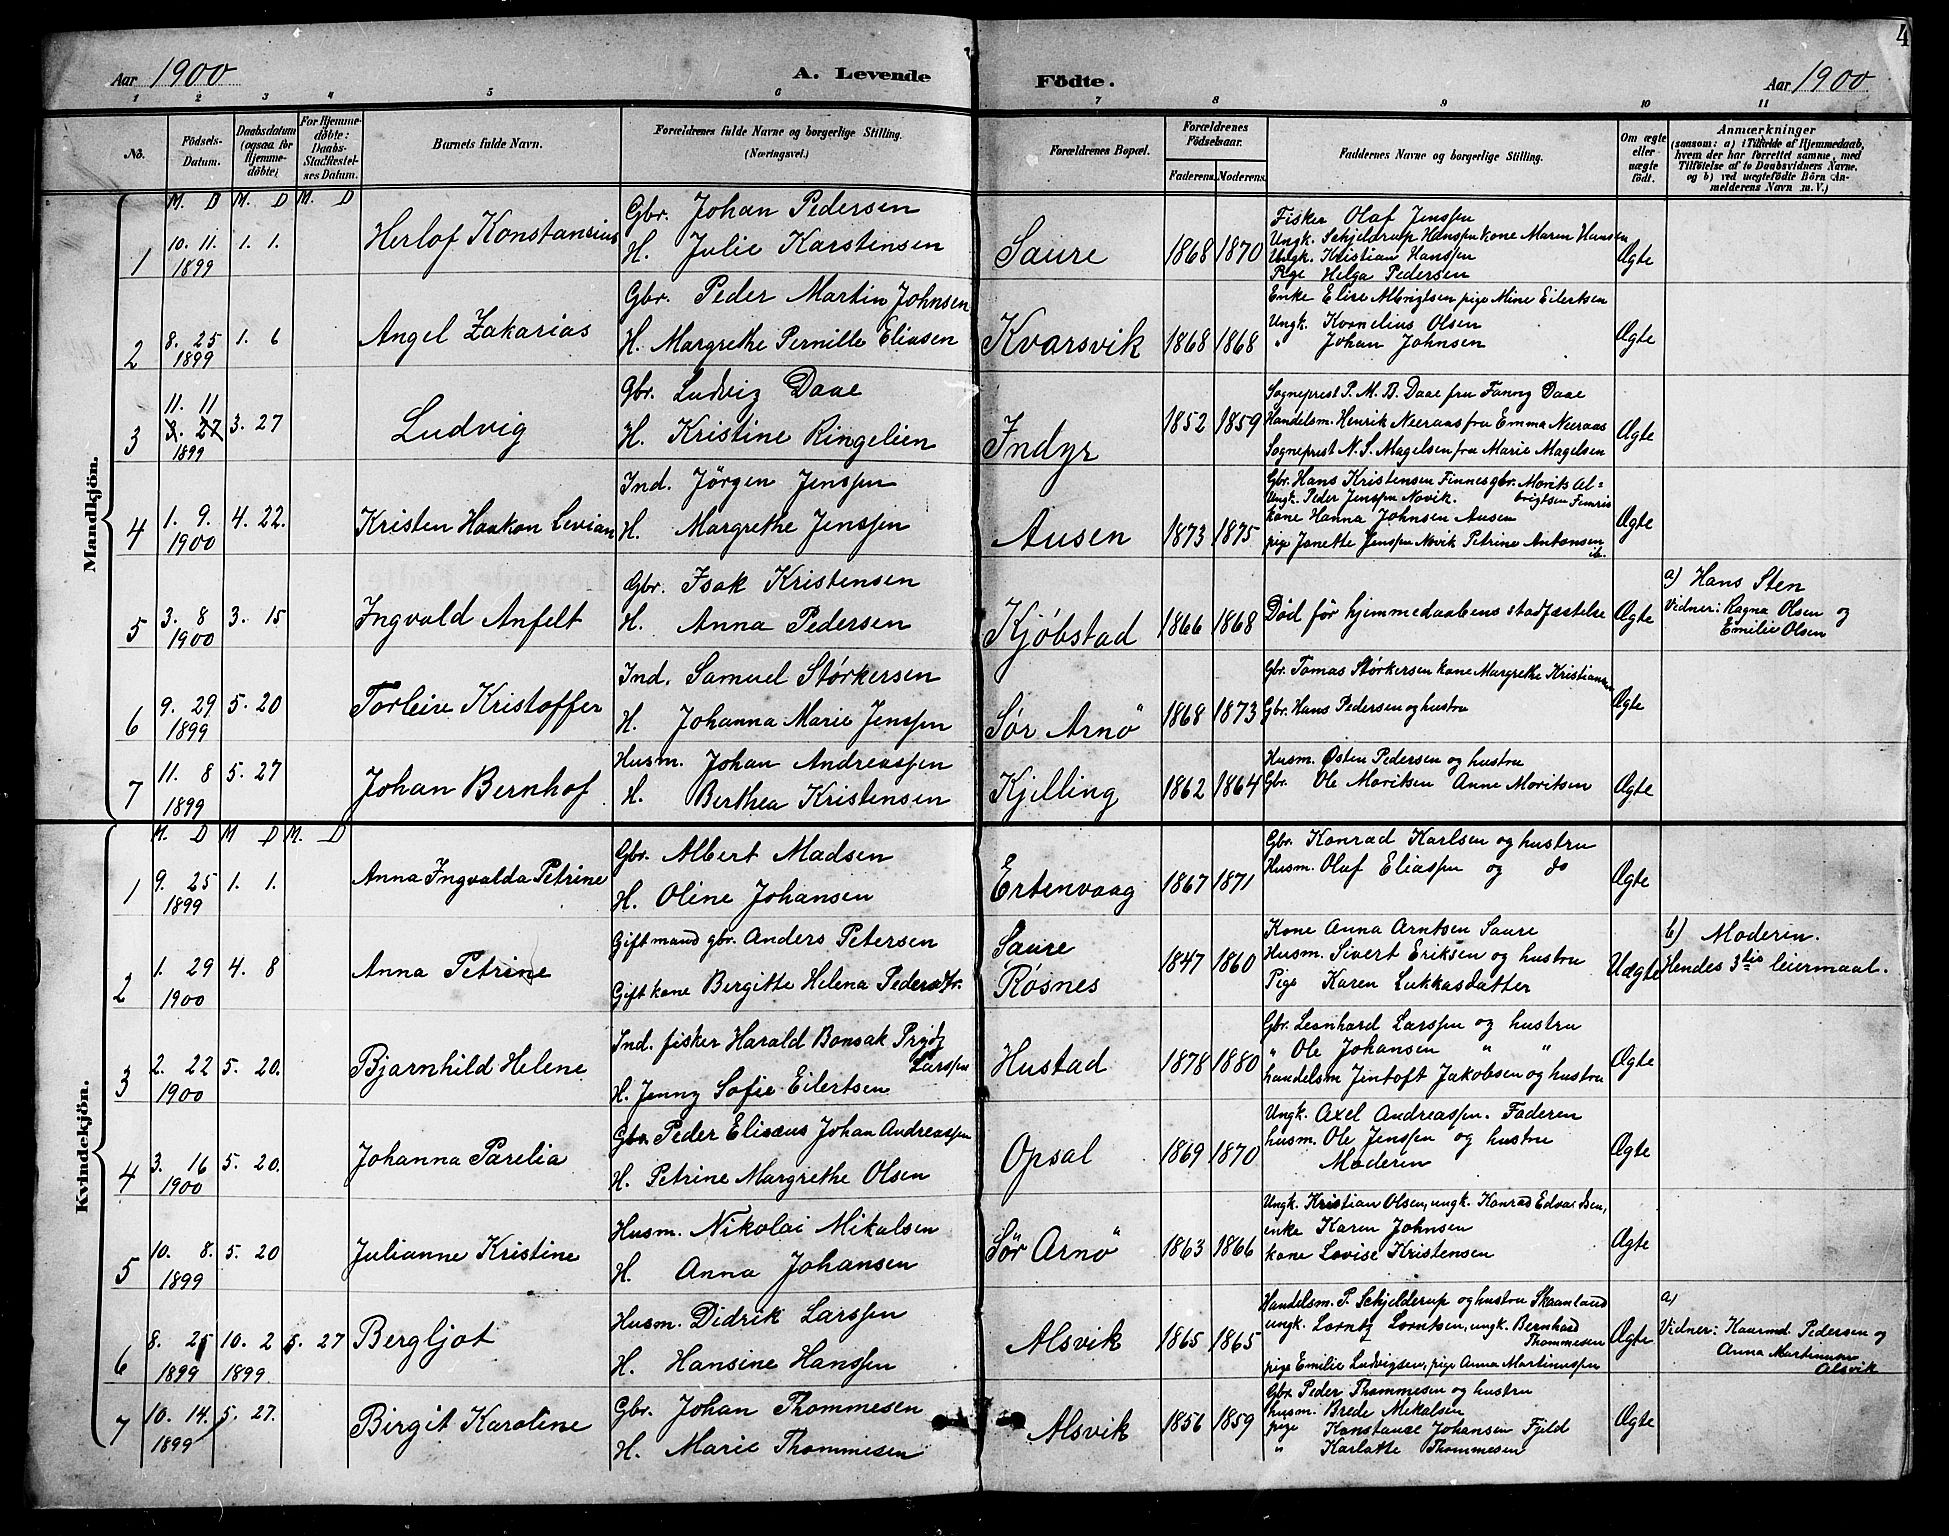 4
Aar 1900
A. Levende Födte.
Aar 1900
1 2 3 4 5 6 7 8 9 10 11
No.
Födsels-Datum.
Daabsdatum (ogsaa for Hjemmedöbte)
For Hjemmedöbte: Daabs-Stadfæstelses Datum.
Barnets fulde Navn.
Forældrenes fulde Navne og borgerlige Stilling. (Næringsvei.)
Forældrenes Bopæl.
Forældrenes Födselsaar.
Faderens. Moderens.
Faddernes Navne og borgerlige Stilling.
Om ægte eller uægte födt.
Anmærkninger
(saasom: a) i Tilfælde af Hjemmedaab, hvem der har forrettet samme, med Tilföielse af to Daabsvidners Navne, og b) ved uægtefödte Börn Anmelderens Navn m. V.)
Mandkjön.
M. D M. D M. D
1
10. 11. 1. 1.
1899
Herlof Konstansius
Gbr. Johan Pedersen
H. Julie Karstensen
Saure
1868 1870
Fisker Olaf Jenssen
Ungk. Schjelderup Hanssen kone Maren Hansen
Ungk. Kristian Hanssen
Pige Helga Pedersen
Ægte
2
8. 25 1. 6
1899
Angel Zakarias
Gbr. Peder Martin Johnsen
H. Margrethe Pernille Eliasen
Kvarsvik
1868 1868
Enke Elise Albrigtsen pige Mine Eilertsen
Ungk. Kornelius Olsen
" Johan Johnsen
Ægte
3
11. 11
3. 27 3. 27
1899
Ludvig
Gbr. Ludvig Daae
H. Kristine Ringelien
Indyr
1852 1859
Sogneprest P. M. B. Daae fru Fanny Daae
Handelsm. Henrik Neeraas fru Emma Neeraas
Sogneprest N. S. Magelsen fru Marie Magelsen
Ægte
4
1. 9. 4. 22.
1900
Kristen Haakon Levian
Ind. Jörgen Jenssen
H. Margrethe Jenssen
Ausen
1873 1875
Gbr. Hans Kristensen Finnes gbr. Morits Al=
Ungk. Peder Jenssen Novik. brigtsen Fenris
kone Hanna Johnsen Ausen
pige Janette Jenssen Novik Petrine Antonsen
ib.
Ægte
5
3. 8 3. 15
1900
Ingvald Anfelt
Gbr. Isak Kristensen
H. Anna Pedersen
Kjøbstad
1866 1868
Død før hjemmedaabens stadfæstelse
Ægte
a) Hans Sten
Vidner: Ragna Olsen og
Emilie Olsen
6
9. 29 5. 20
1899
Torleiv Kristoffer
Ind. Samuel Størkersen
H. Johanna Marie Jenssen
Sør Arnø
1868 1873
Gbr. Tomas Størkersen kone Margrethe Kristiansen
Gbr. Hans Pedersen og hustru
Ægte
7
11. 8 5. 27
1899
Johan Bernhof
Husm. Johan Andreassen
H. Berthea Kristensen
Kjelling
1862 1864
Husm. Østen Pedersen og hustru
Gbr. Ole Moritsen Anne Moritsen
Ægte
Kvindekjön.
M. D M D M. D
1
9. 25 1. 1.
1899
Anna Ingvalda Petrine
Gbr. Albert Madsen
H. Oline Johansen
Ertenvaag
1867 1871
Gbr. Konrad Karlsen og hustru
Husm. Olaf Eliassen og do
Ægte
2
1. 29 4. 8
1900
Anna Petrine
Gift mand gbr. Anders Petersen
Gift kone Bergitte Helena Pedersdtr.
Saure
Røsnes
1847 1860
Kone Anna Arntsen Saure
Husm. Sivert Eriksen og hustru
Pige Karen Lukkasdatter
Uægte
b) Moderen.
Hendes 3tie leiermaal.
3
2. 22 5. 20.
1900
Bjarnhild Helene
Ind. fisker Harald Bonsak Prydz
Larssen
H. Jenny Sofie Eilertsen
Hustad
1878 1880
Gbr. Leonhard Larssen og hustru
" Ole Johansen " "
handelsm Jentoft Jakobsen og hustru
Ægte
4
3. 16 5. 20.
1900
Johanna Parelia
Gbr. Peder Elisæus Johan Andreassen
H. Petrine Margrethe Olsen
Opsal
1869 1870
Ungk. Axel Andreassen. Faderen
husm. Ole Jenssen og hustru
Moderen
Ægte
5
10. 8. 5. 20
1899
Julianne Kristine
Husm. Nikolai Mikalsen
H. Anna Johansen
Sør Arnø
1863 1866
Ungk. Kristian Olsen, ungk. Konrad Edvardsen,
enke Karen Johnsen
kone Lovise Kristensen
Ægte
6
8. 25 10. 2 5. 27
1899 1899.
Bergljot
Husm. Didrik Larssen
H. Hansine Hanssen
Alsvik
1865 1865
Handelsm. P. Schjelderup og hustru Skaanland
ungk. Lorntz Lorntsen, ungk. Bernhard
Thommesen
pige Emilie Ludvigsen, pige Anna Martinussen
Ægte
a)
Vidner: Pedersen og
Anna Martinussen
Alsvik
7
10. 14. 5. 27.
1899
Birgit Karoline
Gbr. Johan Thommesen
H. Marie Thommesen
Alsvik
1856 1859
Gbr. Peder Thommesen og hustru
husm. Brede Mikalsen
pige Konstanse Johansen Fjeld
" Karlotte Thommesen
Ægte